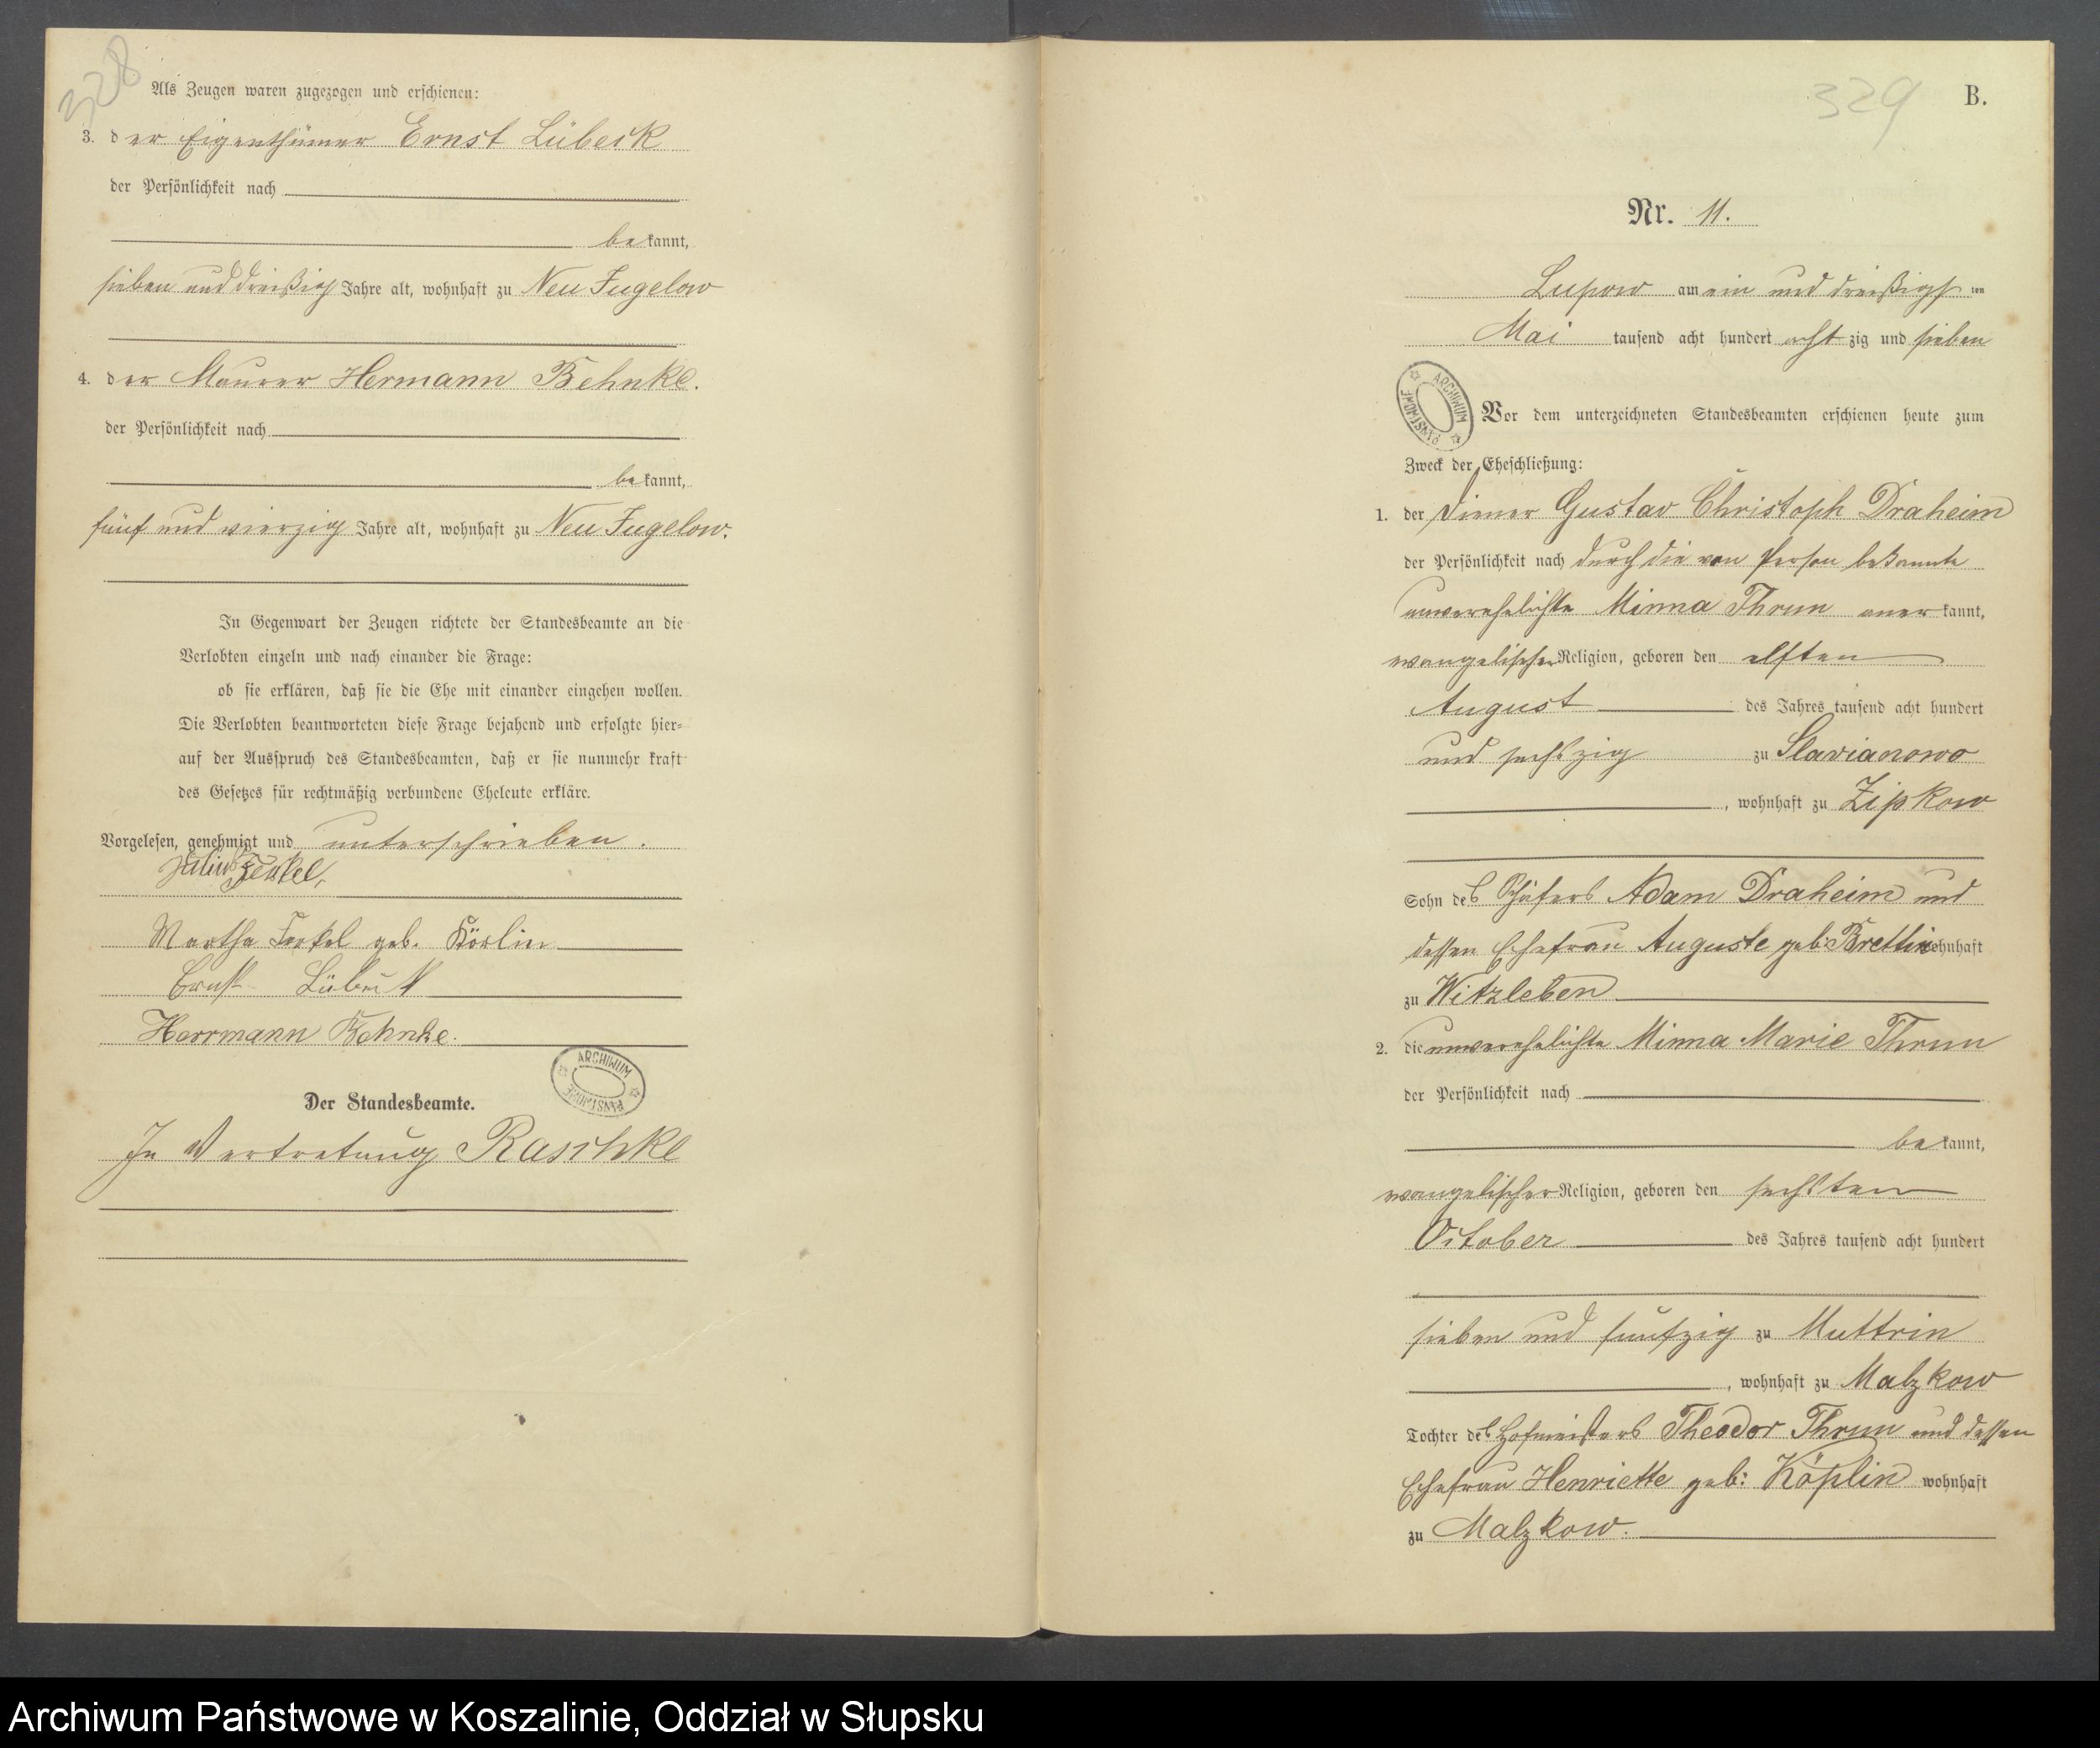 328
Als Zeugen waren zugezogen und erschienen:
3. der Eigenthümer Ernst Lübeck
der Persönlichkeit nach
bekannt,
sieben und dreißig Jahre alt, wohnhaft zu Neu Jugelow
4. der Maurer Hermann Behnke.
der Persönlichkeit nach
bekannt,
fünf und vierzig Jahre alt, wohnhaft zu Neu Jugelow.
In Gegenwart der Zeugen richtete der Standesbeamte an die
Verlobten einzeln und nach einander die Frage:
ob sie erklären, daß sie die Ehe mit einander eingehen wollen.
Die Verlobten beantworteten diese Frage bejahend und erfolgte hier-
auf der Ausspruch des Standesbeamten, daß er sie nunmehr kraft
des Gesetzes für rechtmäßig verbundene Eheleute erkläre.
Vorgelesen, genehmigt und unterschrieben.
Julius
Martha geb. Körlin
Ernst Lübeck
Herrmann Behnke.
Der Standesbeamte.
In Vertretung Raschke
ARCHIWUM PAŃSTWOWE
329
B.
Nr. 11.
Lupow am ein und dreißigsten
Mai tausend acht hundert achtzig und sieben
ARCHIWUM PAŃSTWOWE
Vor dem unterzeichneten Standesbeamten erschienen heute zum
Zweck der Eheschließung:
1. der Diener Gustav Christoph Draheim
der Persönlichkeit nach durch die von Person bekannte
unverehelichte Minna Thrun anerkannt,
evangelischer Religion, geboren den elften
August des Jahres tausend acht hundert
und sechszig zu Slavianowo
, wohnhaft zu Zipkow
Sohn des Schäfers Adam Draheim und
dessen Ehefrau Auguste geb: Brettin wohnhaft
zu Witzleben
2. die unverehelichte Minna Marie Thrun
der Persönlichkeit nach
bekannt,
evangelischer Religion, geboren den sechsten
October des Jahres tausend acht hundert
sieben und fünfzig zu Muttrin
, wohnhaft zu Malzkow
Tochter des Hofmeisters Theodor Thrun und dessen
Ehefrau Henriette geb: Köplin wohnhaft
zu Malzkow.
Archiwum Państwowe w Koszalinie, Oddział w Słupsku